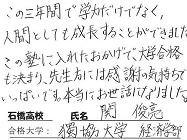 この三年間で学力だけでなく、
人間としても成長することができました。
この塾に入れたおかげで、大学合格
も決まり、先生方には感謝の気持ちで
いっぱいです。本当にお世話になりました。
石橋高校 氏名 関 俊亮
合格大学: 獨協大学 経済学部